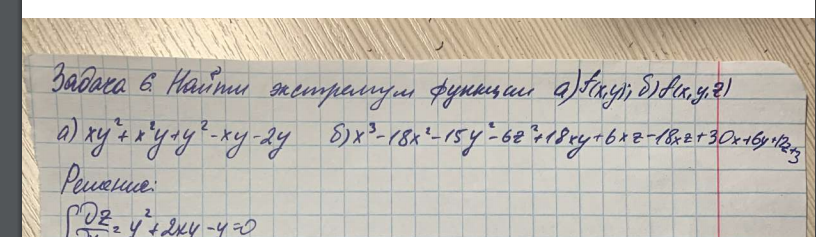 Задача 6. Найти экстремум функции а) f(x,y); б) f(x,y,z)
а) xy²+x²y+y²-xy-2y б) x³-18x²-15y²-6z²+18xy+6xz-18xz+30x+6y+12z+3
Решение:
{∂z/∂x = y²+2xy-y=0